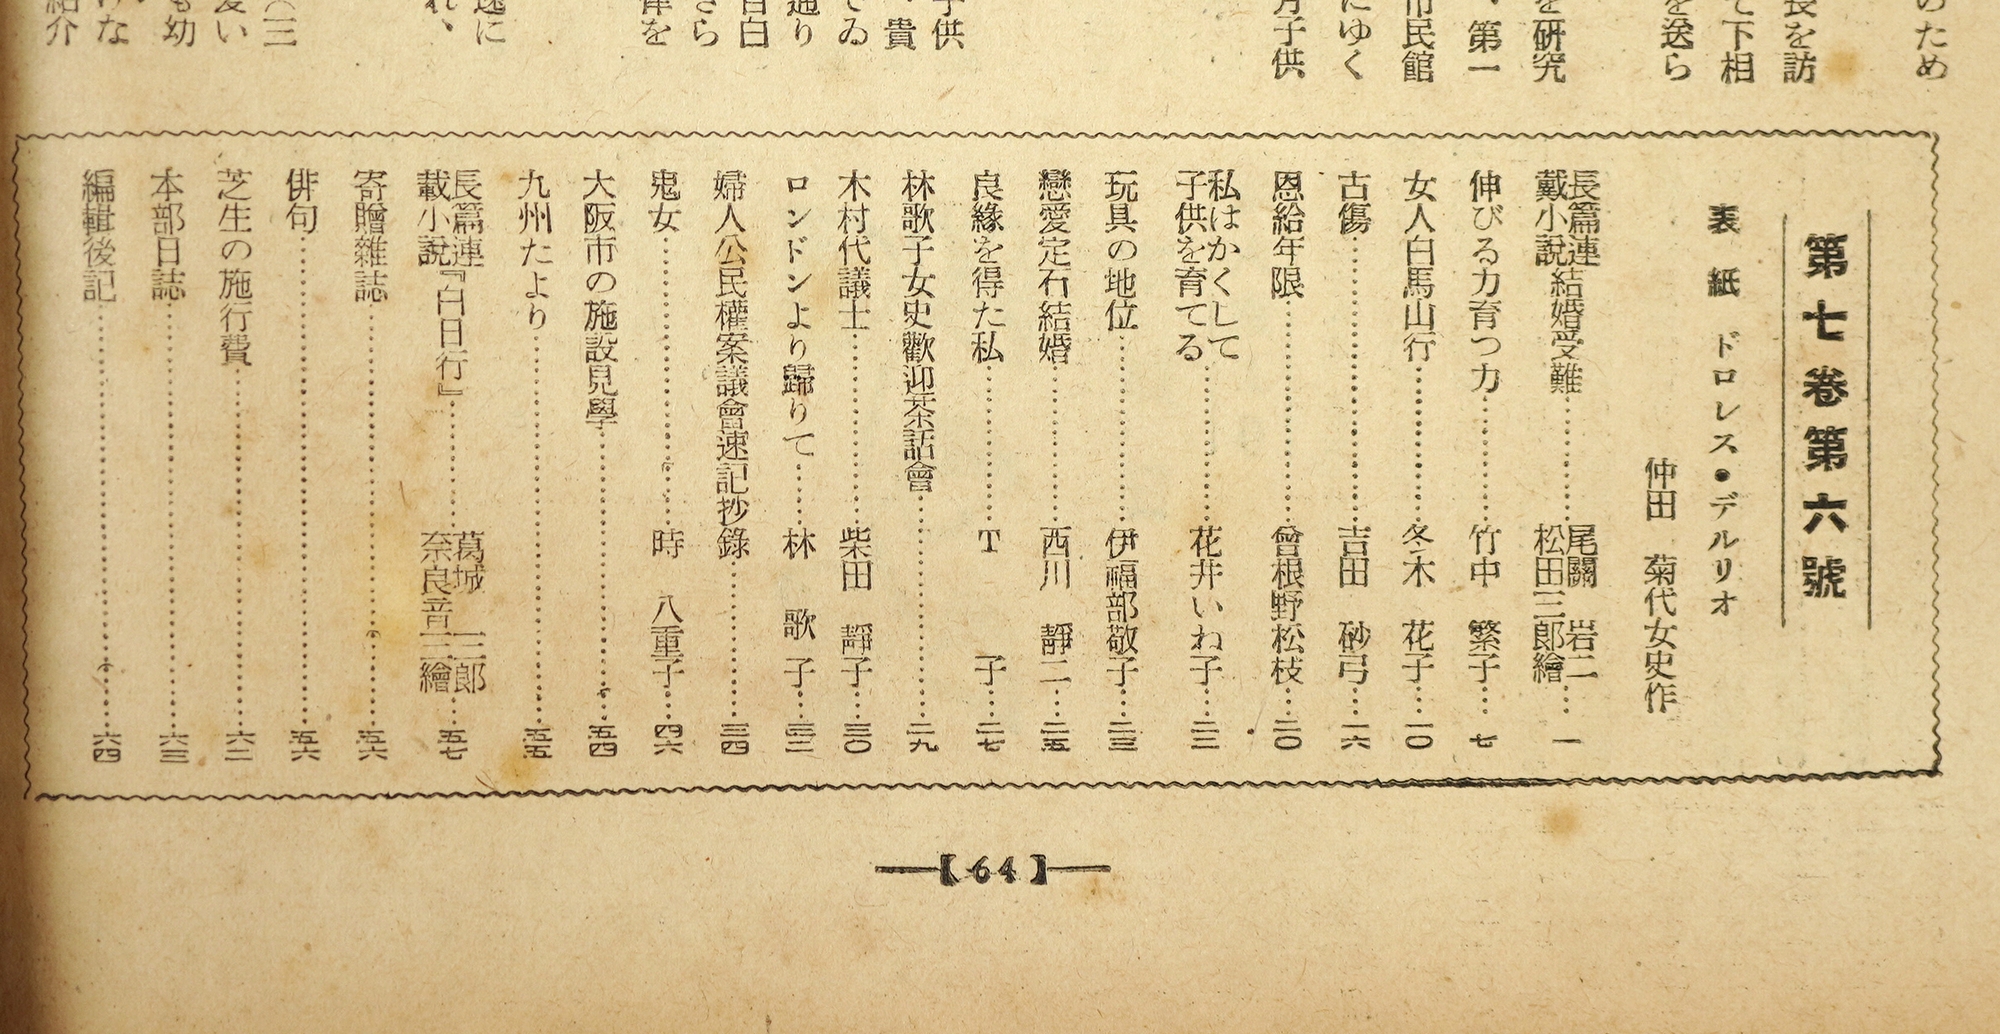 のため
長を訪
て下相
を送ら
を研究
、第一
市民館
にゆく
月子供
子供
、貴
てゐ
通り
自白
さら
逸に
れ、
（三
愛い
も幼
けな
紹介
第七卷第六號
表紙 ドロレス・デルリオ
仲田 菊代女史作
長篇連戴小說 結婚受難……尾關 岩二 松田三郎繪…一
伸びる力育つ力……竹中 繁子…七
女人白馬山行……冬木 花子…一〇
古傷……吉田 砂弓…一六
恩給年限……曾根野松枝…二〇
私はかくして子供を育てる……花井いね子…二二
玩具の地位……伊福部敬子…二三
戀愛定石結婚……西川 靜二…二五
良緣を得た私……T 子…二七
林歌子女史歡迎茶話會……二九
木村代議士……柴田 靜子…三〇
ロンドンより歸りて……林 歌子…三二
婦人公民權案議會速記抄錄……三四
鬼女……時 八重子…四六
大阪市の施設見學……五四
九州たより……五五
長篇連載小說『白日行』……葛城 三郎 奈良音三繪…五七
寄贈雜誌……五六
俳句……五六
芝生の施行費……六二
本部日誌……六三
編輯後記……六四
【64】